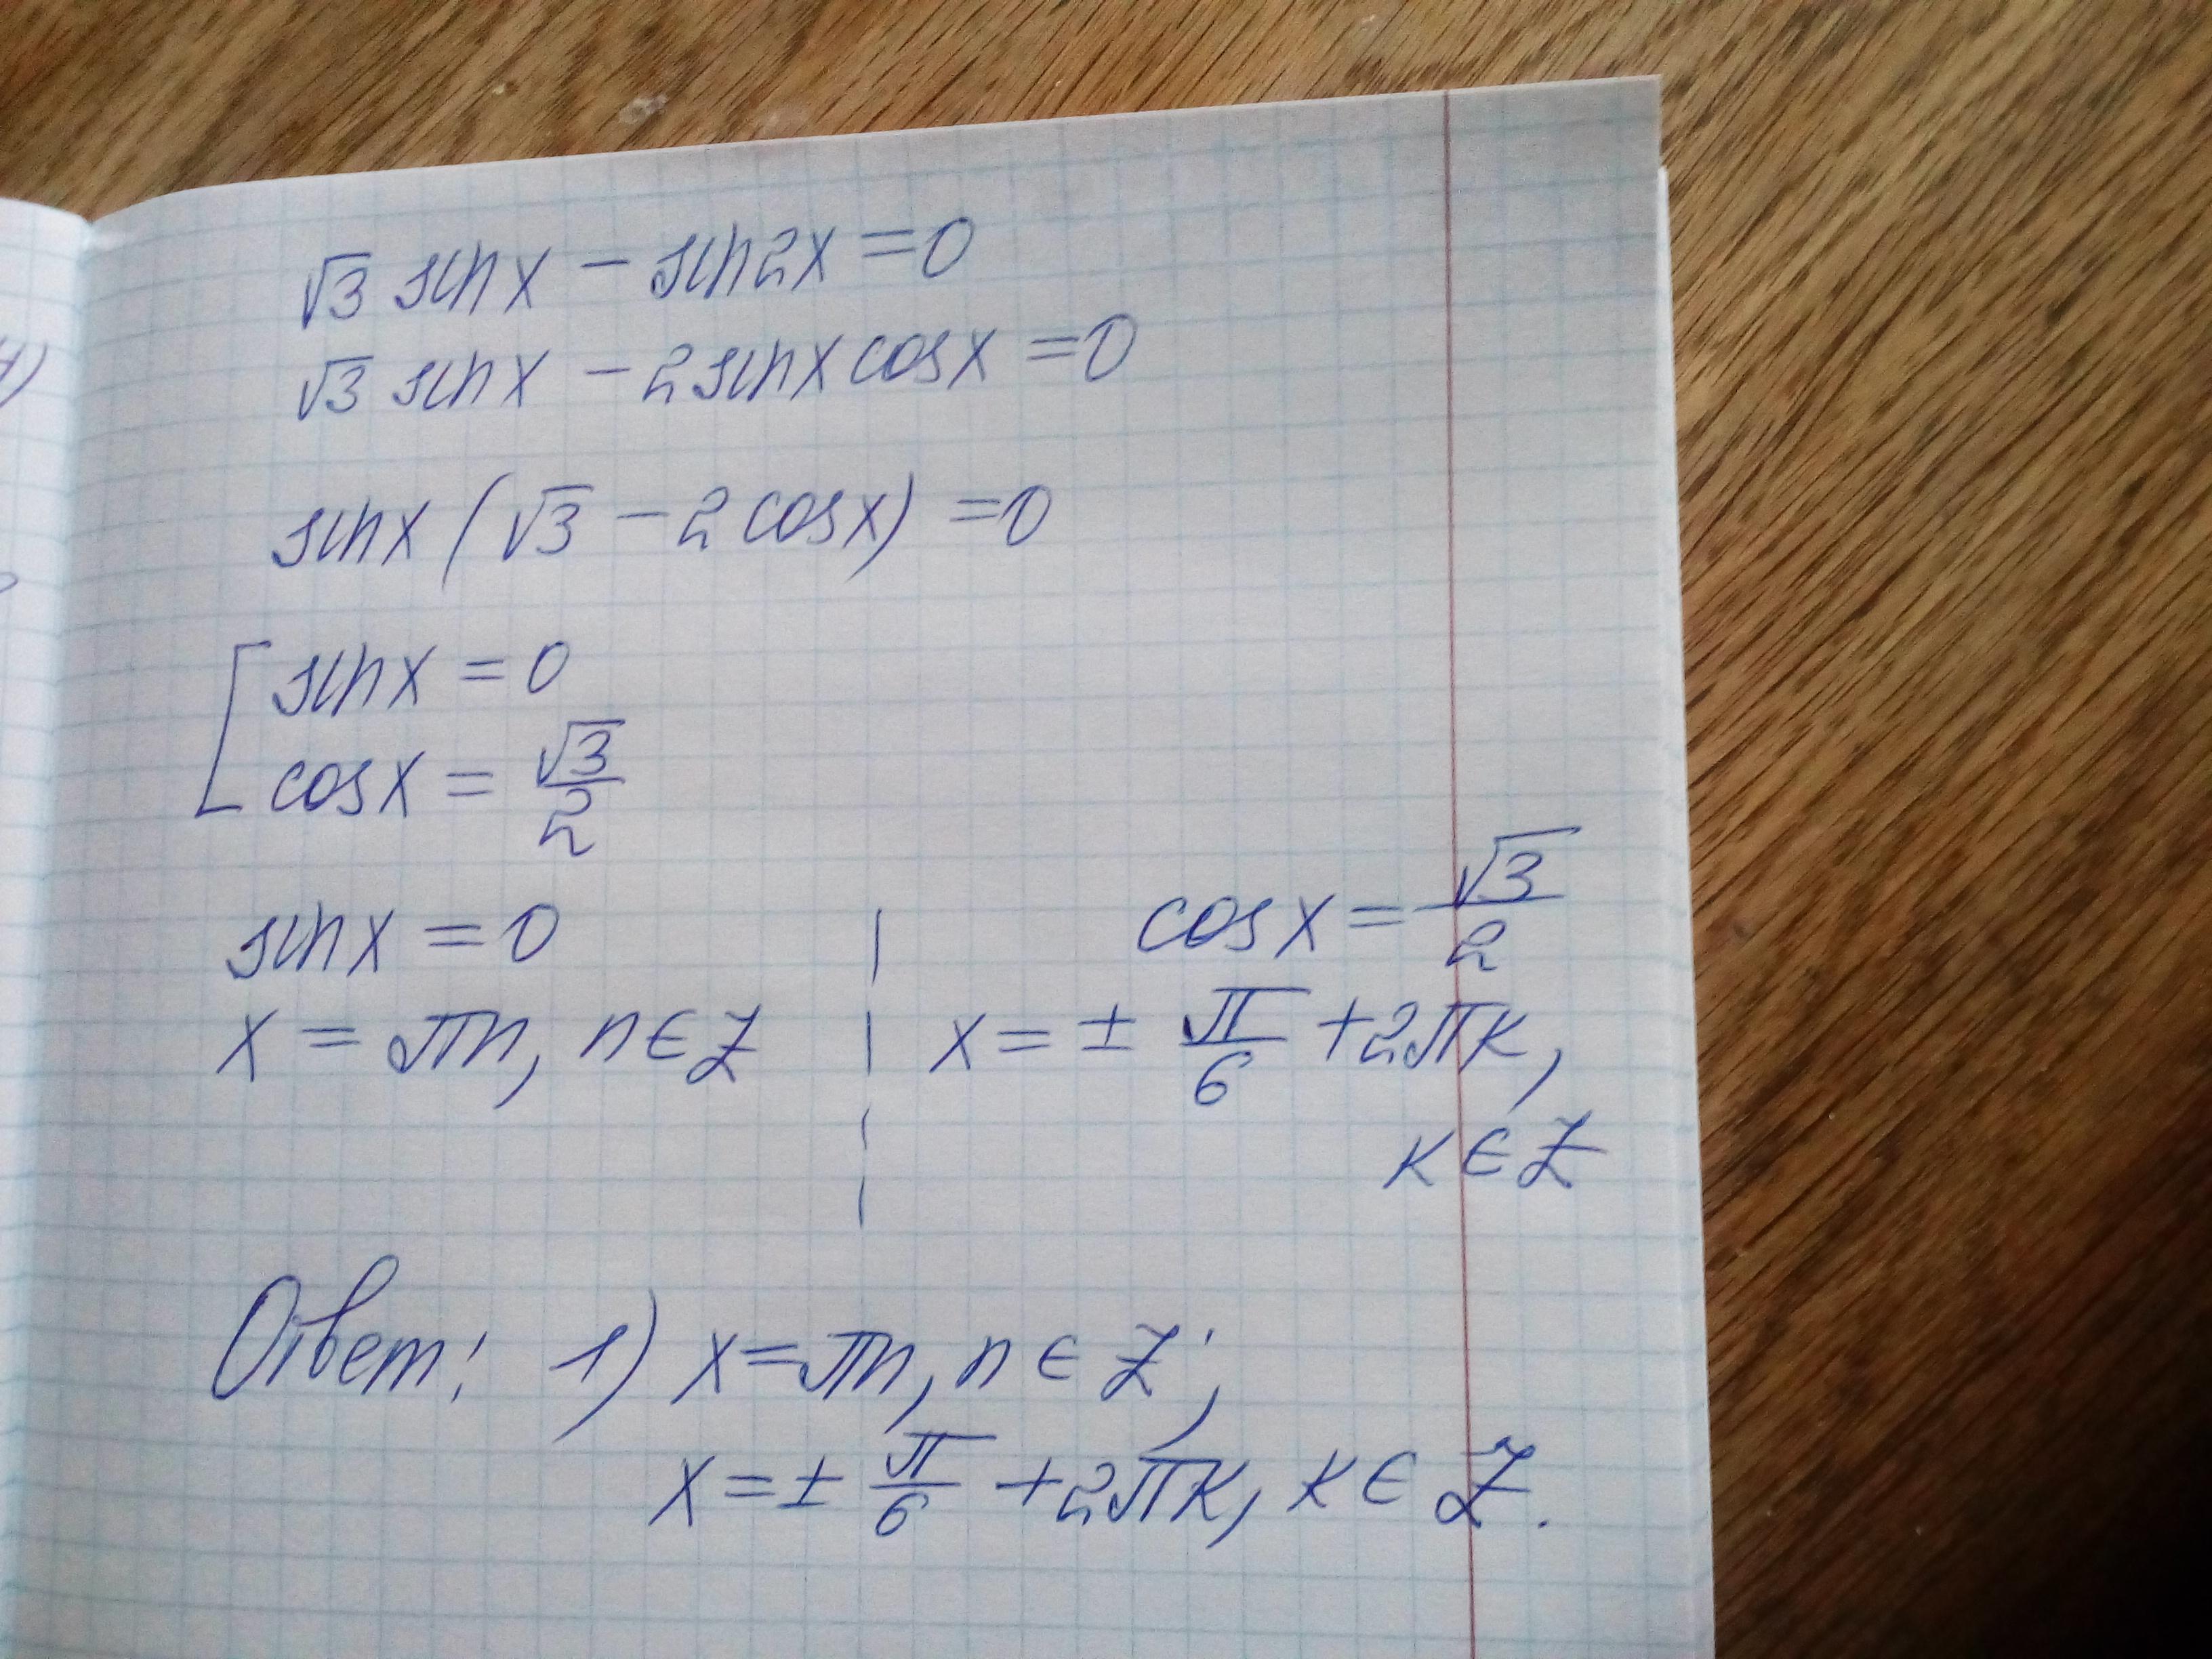 √3 sin x − sin 2x = 0
√3 sin x − 2 sin x cos x = 0
sin x (√3 − 2 cos x) = 0
[ sin x = 0
cos x = √3/2
sin x = 0 | cos x = √3/2
x = πn, n ∈ Z | x = ± π/6 + 2πk,
k ∈ Z
Ответ: 1) x = πn, n ∈ Z;
x = ± π/6 + 2πk, k ∈ Z.